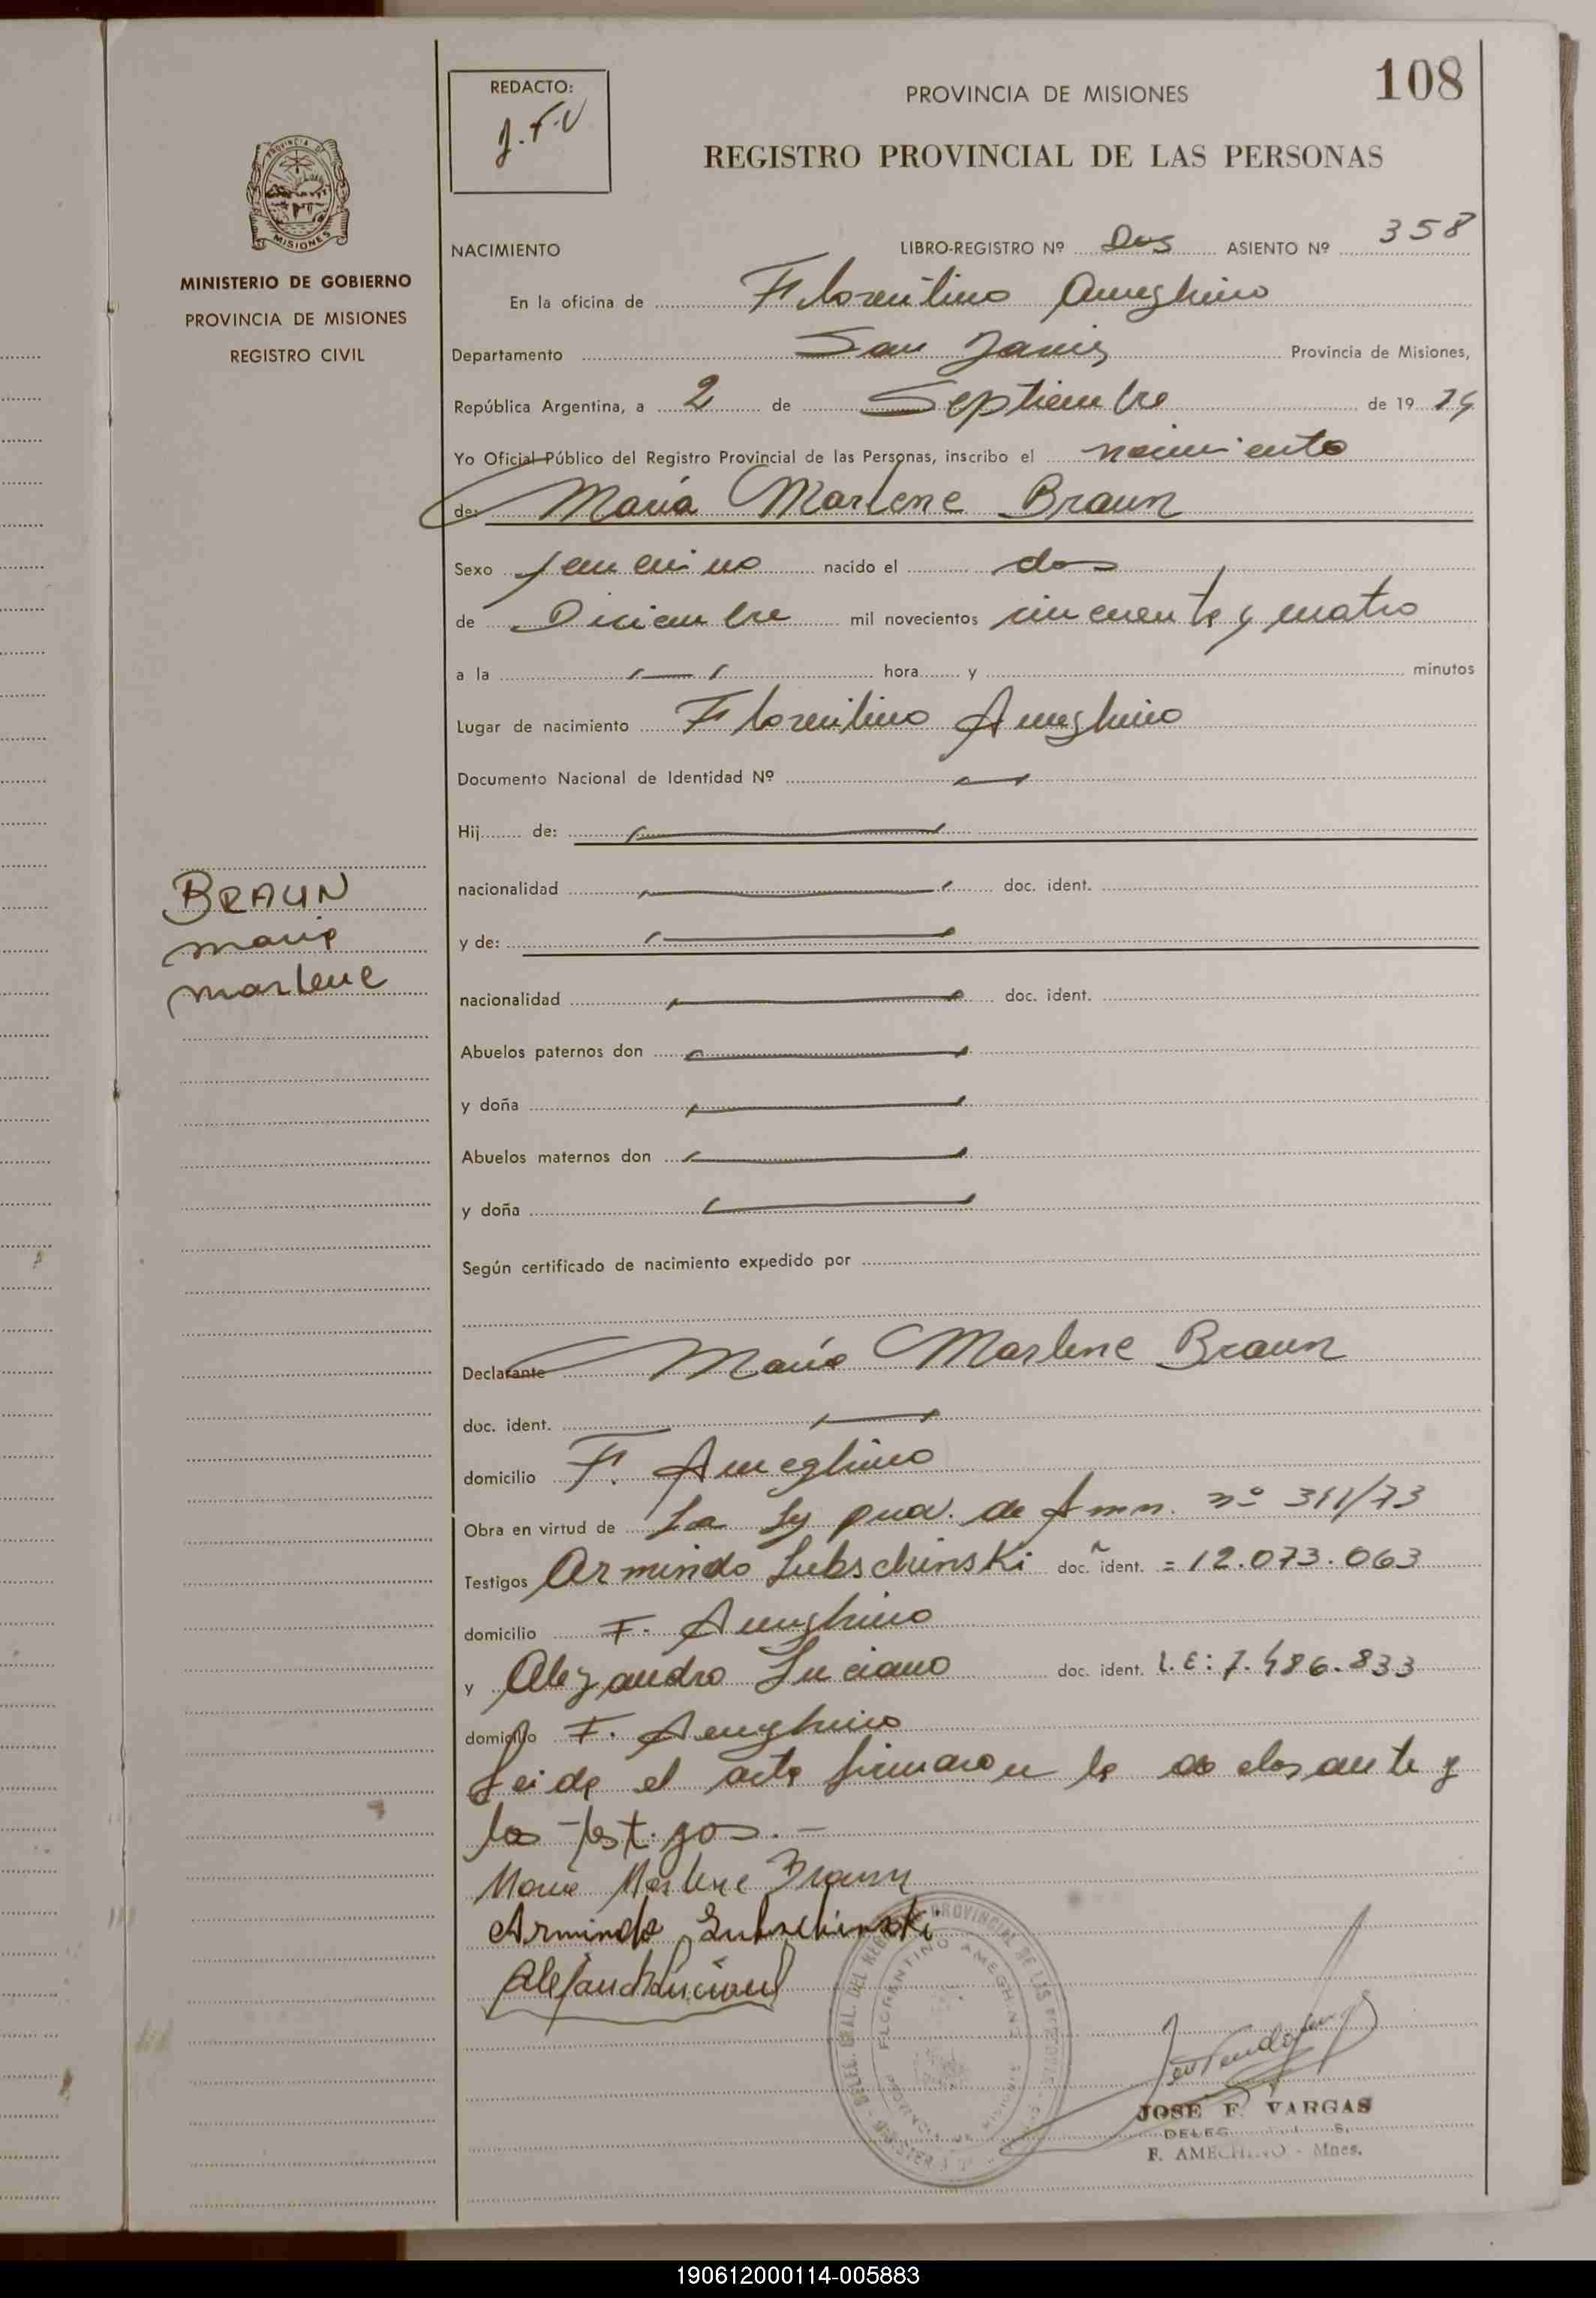 108
REDACTO:
J.F.V
PROVINCIA DE MISIONES
REGISTRO PROVINCIAL DE LAS PERSONAS
PROVINCIA DE
MISIONES
MINISTERIO DE GOBIERNO
PROVINCIA DE MISIONES
REGISTRO CIVIL
NACIMIENTO LIBRO-REGISTRO Nº Dos ASIENTO Nº 358
En la oficina de Florentino Ameghino
Departamento San Javier Provincia de Misiones,
República Argentina, a 2 de Septiembre de 19 74
Yo Oficial Público del Registro Provincial de las Personas, inscribo el nacimiento
de: María Marlene Braun
Sexo femenino nacido el dos
de Diciembre mil novecientos cincuenta y cuatro
a la hora y minutos
Lugar de nacimiento Florentino Ameghino
Documento Nacional de Identidad Nº
Hij de:
nacionalidad doc. ident.
y de:
nacionalidad doc. ident.
Abuelos paternos don
y doña
Abuelos maternos don
y doña
BRAUN
Maria
Marlene
Según certificado de nacimiento expedido por
Declarante María Marlene Braun
doc. ident.
domicilio F. Ameghino
Obra en virtud de La Ley prov. de Amn. nº 311/73
Testigos Armindo Lubschinski doc. ident. = 12.073.063
domicilio F. Ameghino
y Alejandro Luciano doc. ident. L.E: 7.486.833
domicilio F. Ameghino
Leida el acta firmaron la declarante y
los testigos.-
Maria Marlene Braun
Armindo Lubschinski
Alejandro Luciano
FLORENTINO AMEGHINO
JOSE F. VARGAS
F. AMEGHINO - Mnes.
190612000114-005883